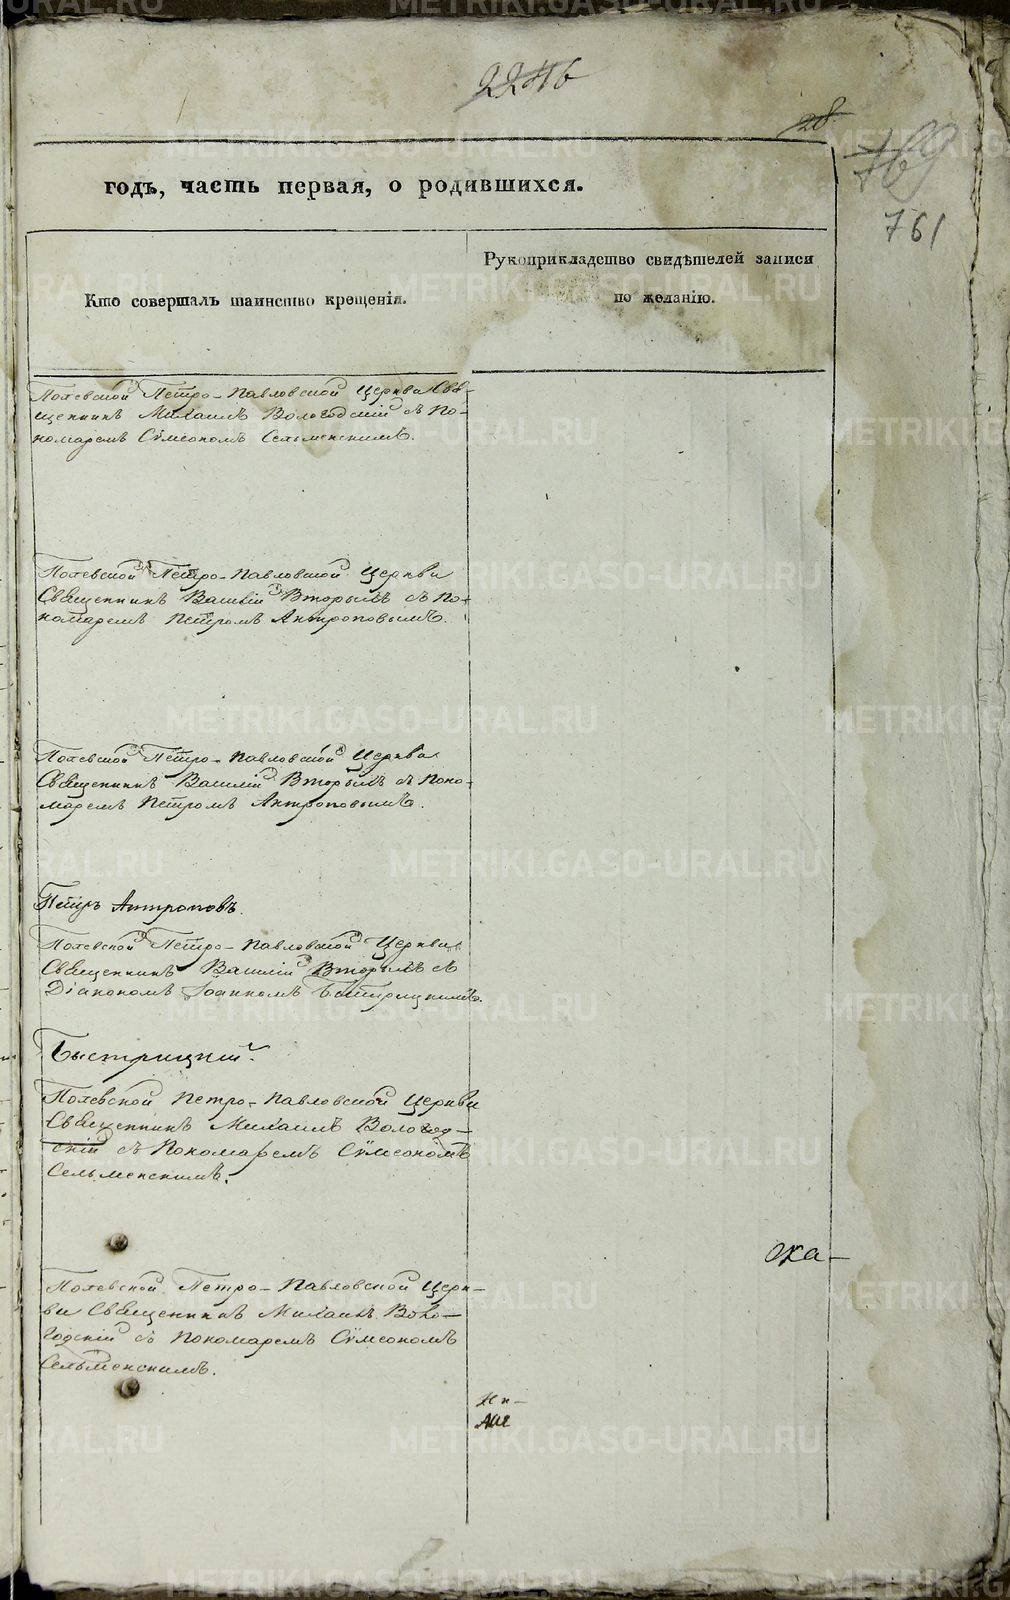 2246
28
769
761
годъ, часть первая, о родившихся.
Кто совершалъ таинство крещенія.
Рукоприкладство свидѣтелей записи
по желанію.
Полевской Петро-Павловской Церкви Свя-
щенникъ Михаилъ Вологодскій съ По-
номаремъ Сѵмеономъ Сельменскимъ.
Полевской Петро-Павловской Церкви
Священникъ Василій Вторыхъ съ По-
номаремъ Петромъ Антроповымъ.
Полевской Петро-Павловской Церкви
Священникъ Василій Вторыхъ съ Поно-
маремъ Петромъ Антроповымъ.
Петръ Антроповъ.
Полевской Петро-Павловской Церкви
Священникъ Василій Вторыхъ съ
Діакономъ Іоанномъ Быстрицкимъ.
Быстрицкій.
Полевской Петро-Павловской Церкви
Священникъ Михаилъ Вологод-
скій съ Пономаремъ Сѵмеономъ
Сельменскимъ.
Ска-
Полевской Петро-Павловской Церк-
ви Священникъ Михаилъ Воло-
годскій съ Пономаремъ Сѵмеономъ
Сельменскимъ.
METRIKI.GASO-URAL.RU